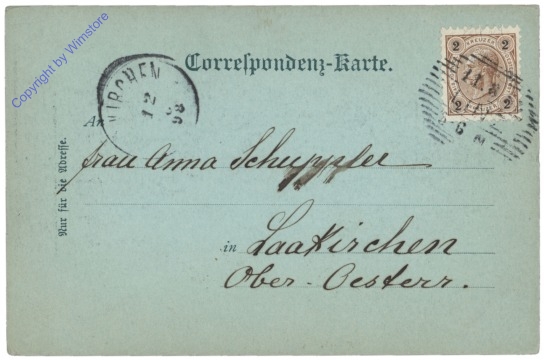 copyright by Wimstore
Correspondenz-Karte.
2 KREUZER 2
2 2
KIRCHEN
2
1
98
An
Frau Anna Scheppfer
in Laakirchen
Ober-Oesterr.
Nur für die Adresse.